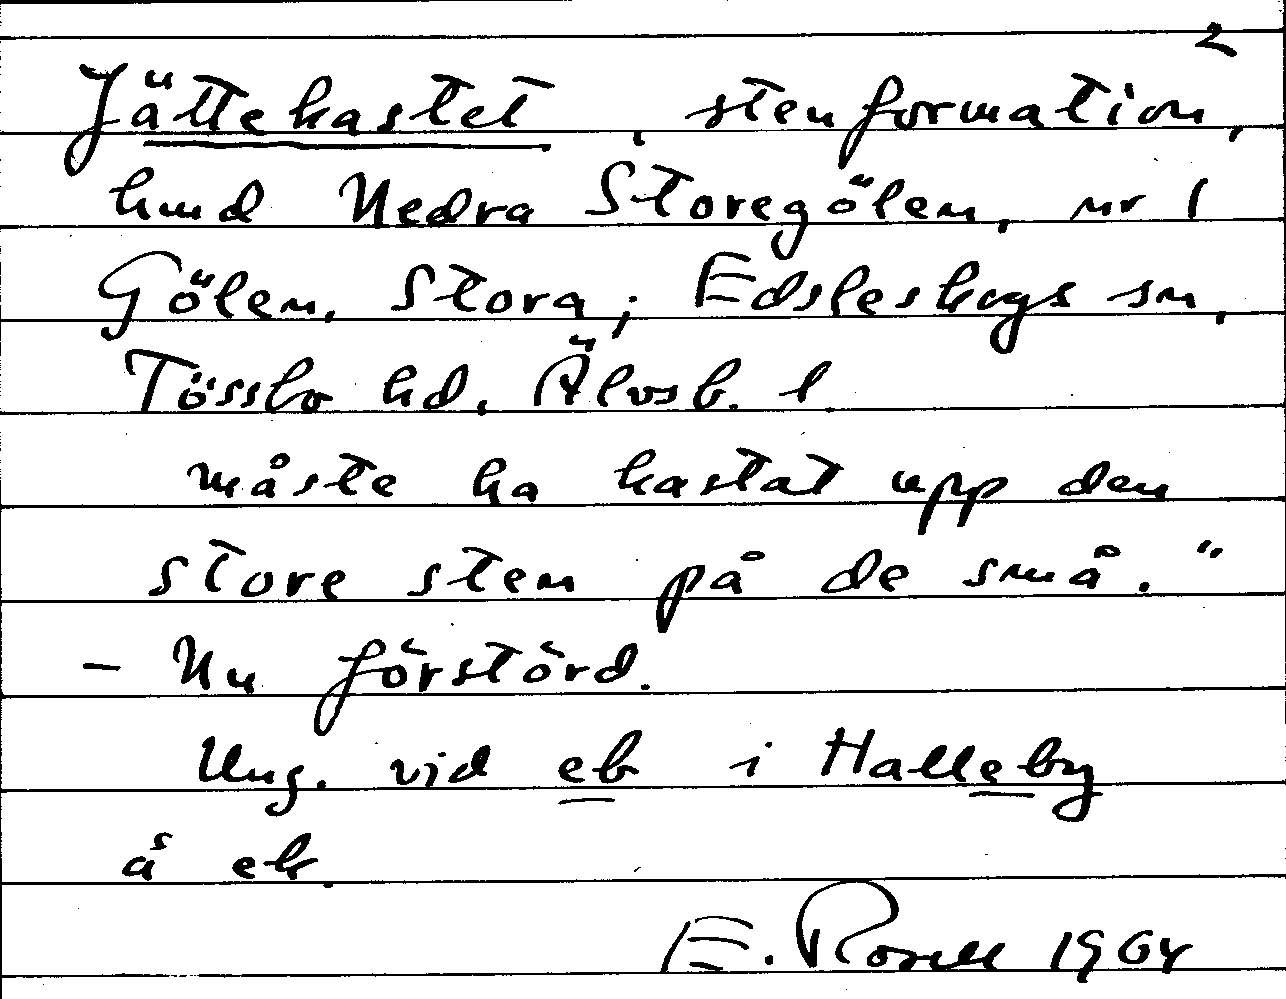 2
Jättekastet, stenformation,
hmd Nedra Storegölen, nr 1
Gölen, Stora; Edsleskogs sn,
Tössbo hd, Älvsb. l.
måste ha kastat upp den
store sten på de små."
- Nu förstörd.
Ung. vid eb i Halleby
å ek.
E. Rosell 1964